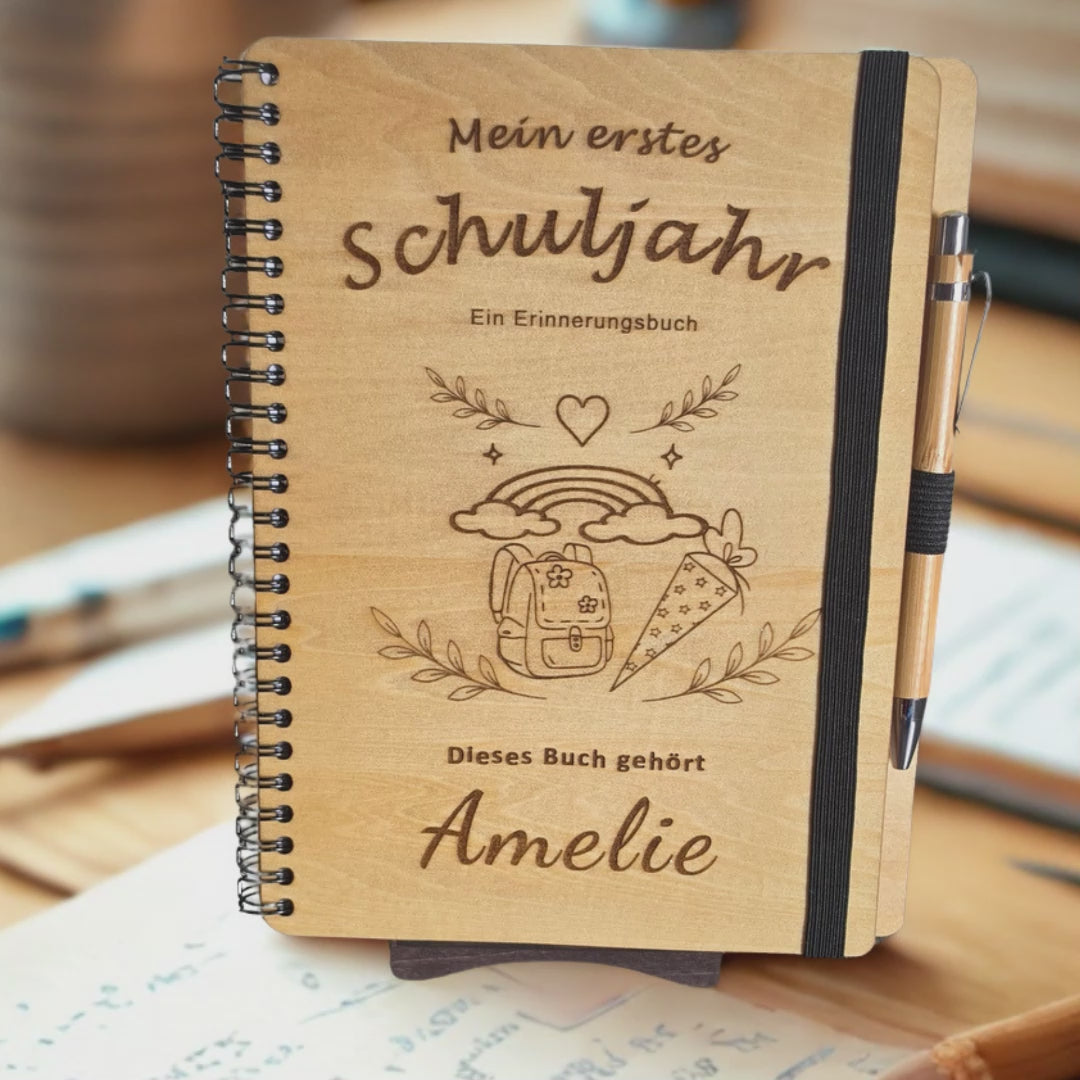 Mein erstes
Schuljahr
Ein Erinnerungsbuch
Dieses Buch gehört
Amelie